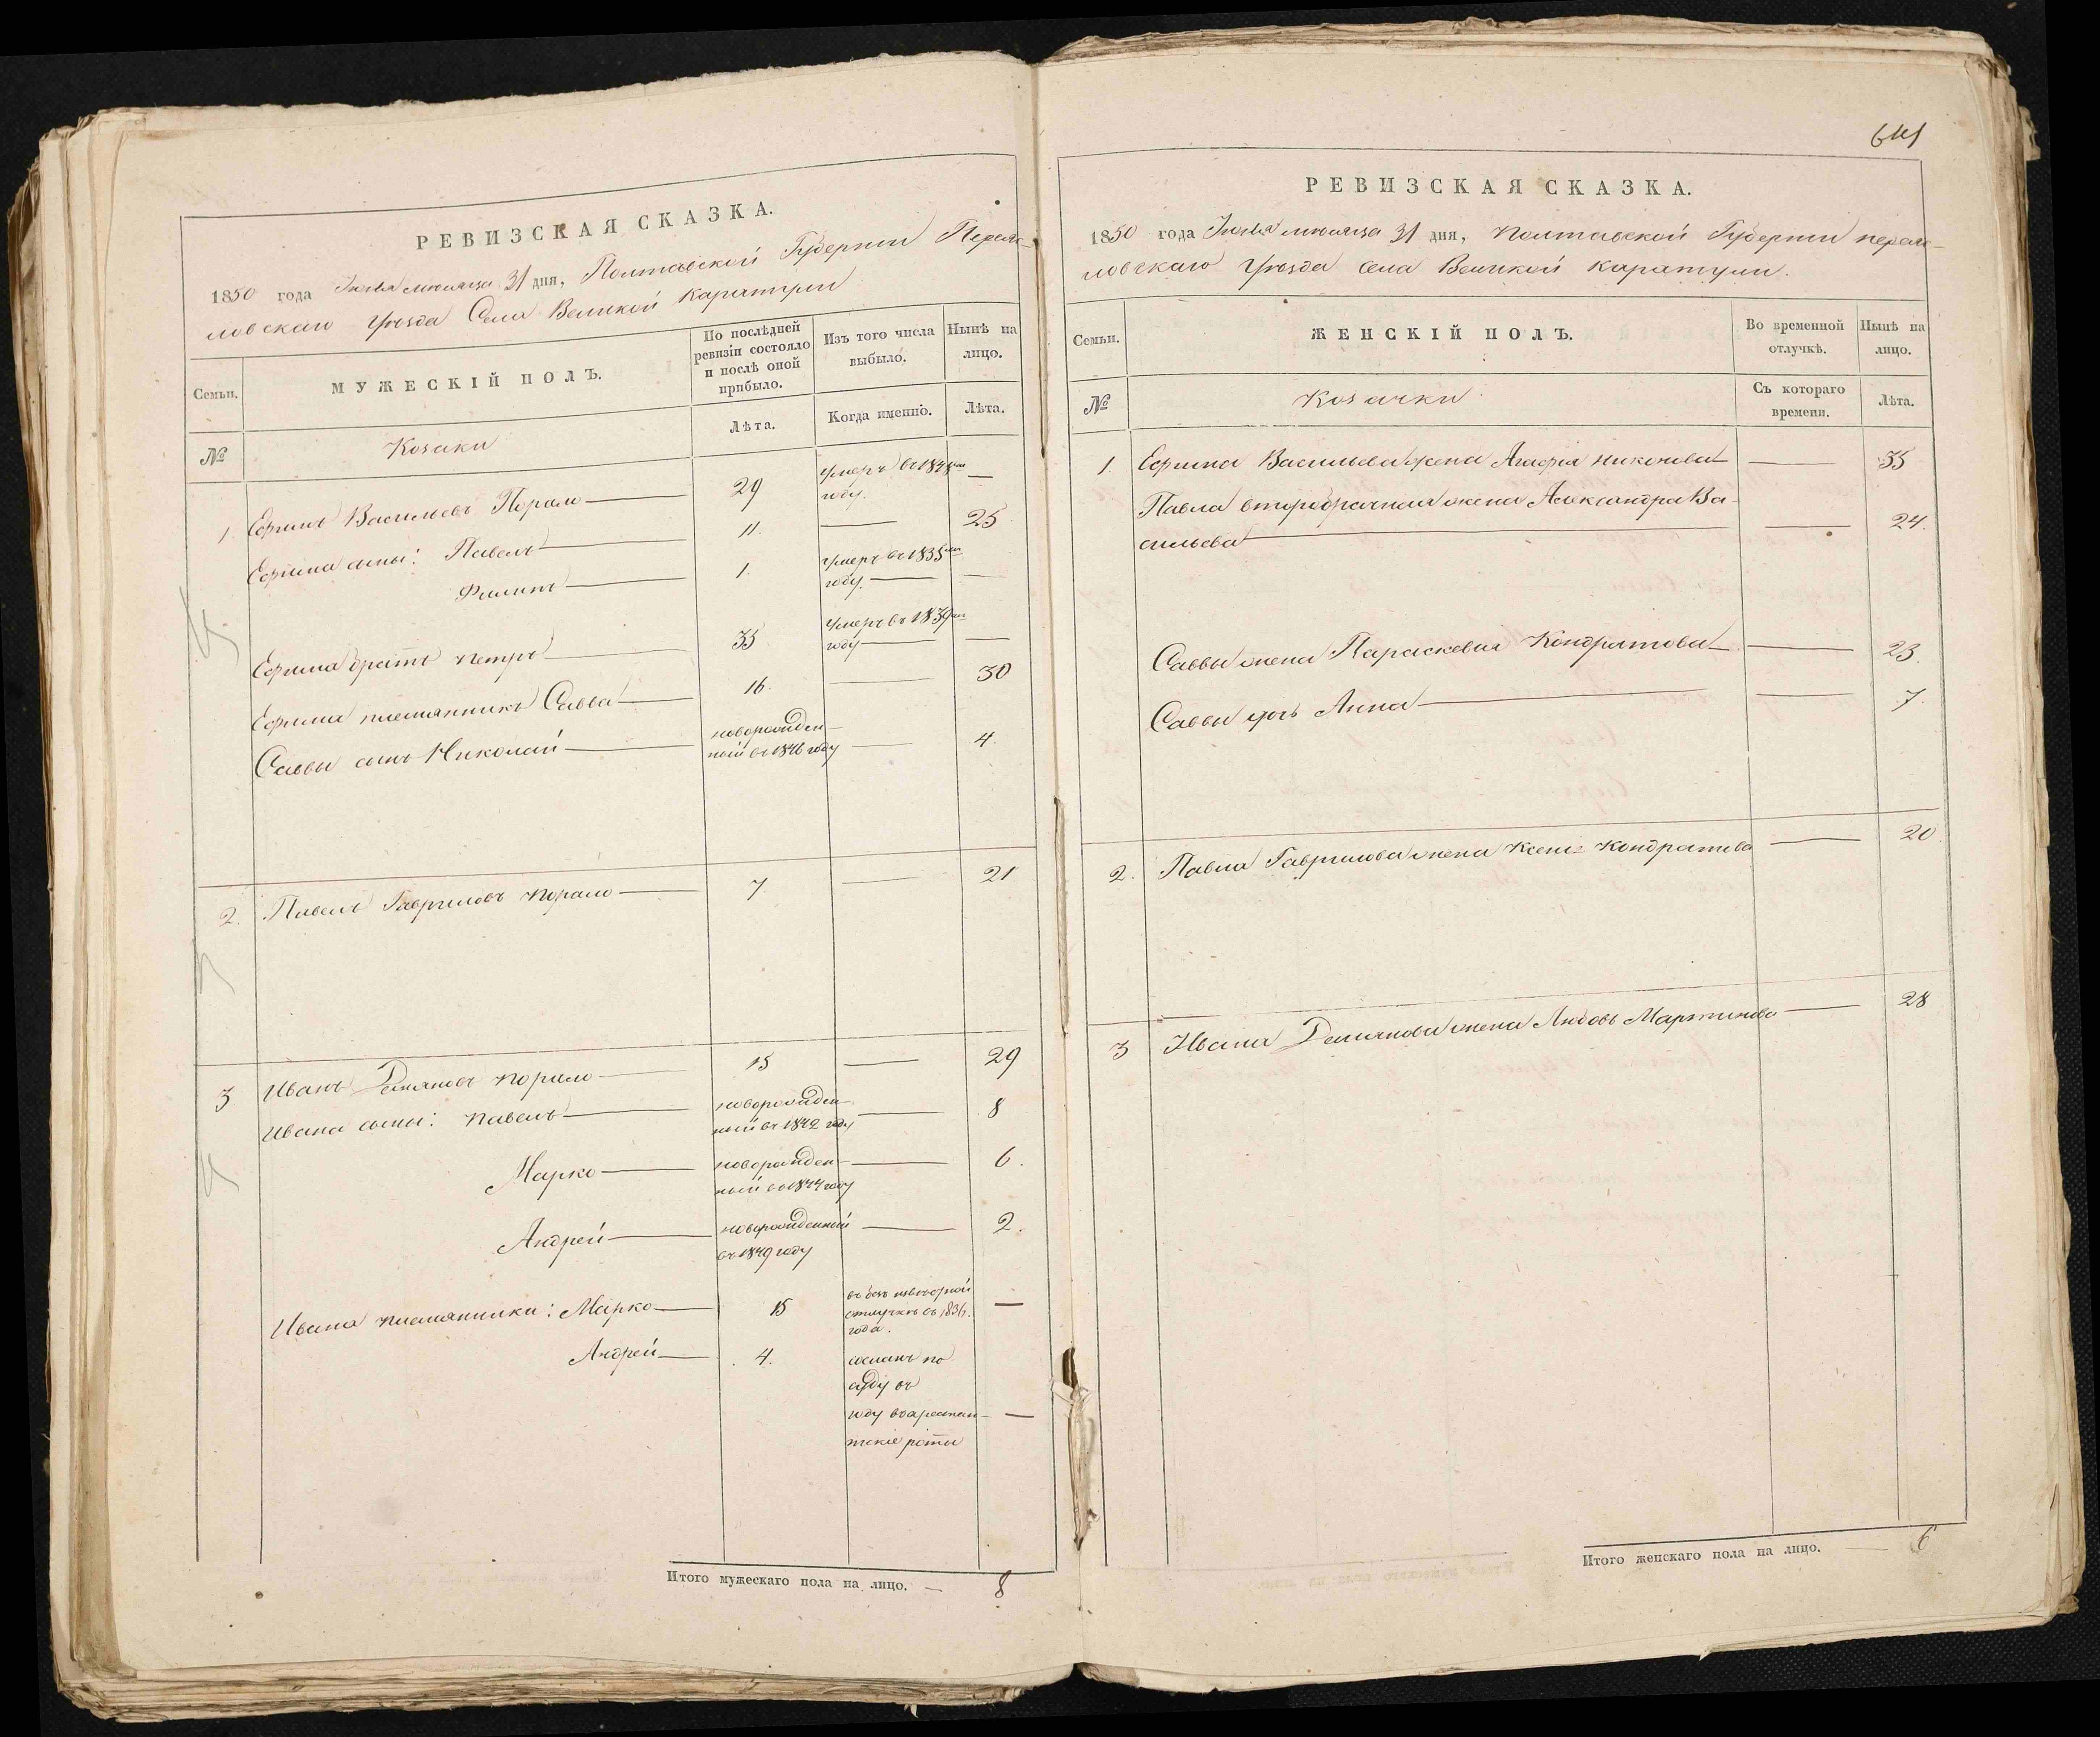 РЕВИЗСКАЯ СКАЗКА.
1850 года Июля месяца 31 дня, Полтавской Губернии Переяс-
ловскаго Уѣзда Села Великой Каратули
Семьи.
МУЖЕСКІЙ ПОЛЪ.
По послѣдней ревизіи состояло и послѣ оной прибыло.
Изъ того числа выбыло.
Нынѣ на лицо.
№
Козаки
Лѣта.
Когда именно.
Лѣта.
1. Ефимъ Васильевъ 29 умеръ въ 1848мъ году. —
Ефима сыны: Павелъ 11. — 25
Филипъ 1. умеръ въ 1835мъ году. —
Ефима братъ Петръ 35 умеръ въ 1839мъ году —
Ефима племянникъ Савва 16. — 30
Саввы сынъ Николай новорожден-
ный въ 1846 году — 4.
2. Павелъ Гавриловъ 7 — 21
3. Иванъ Демяновъ 15 — 29
Ивана сыны: Павелъ новорожден-
ный въ 1842 году — 8
Марко новорожден-
ный въ 1844 году — 6.
Андрей новорожденный
въ 1849 году — 2.
Ивана племянники: Марко 15 въ безъизвѣстной
отлучкѣ съ 1836.
года. —
Андрей 4. сосланъ по
суду въ
году въ арестан-
тскіе роты —
Итого мужескаго пола на лицо. — 8
641
РЕВИЗСКАЯ СКАЗКА.
1850 года Июля месяца 31 дня, Полтавской Губернии переяс-
ловскаго Уѣзда села Великой Каратули.
Семьи.
ЖЕНСКІЙ ПОЛЪ.
Во временной отлучкѣ.
Нынѣ на лицо.
№
Козачки
Съ котораго времени.
Лѣта.
1. Ефима Васильева жена Агафія Никонова — 55
Павла второбрачная жена Александра Ва-
сильева — 24.
Саввы жена Параскевия Кондратова — 23.
Саввы дочь Анна — 7.
2. Павла Гаврилова жена Ксенія Кондратова — 20
3 Ивана Демянова жена Любовь Мартинова — 28
Итого женскаго пола на лицо. — 6